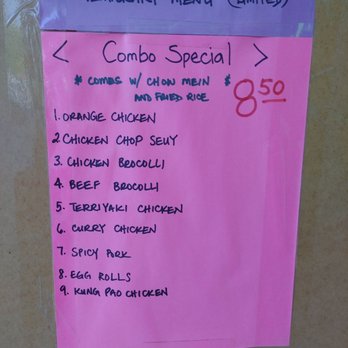 TEMPORARY MENU (LIMITED)
< Combo Special >
* COMES W/ CHOW MEIN
AND FRIED RICE
$8.50
1. ORANGE CHICKEN
2 CHICKEN CHOP SEUY
3. CHICKEN BROCOLLI
4. BEEF BROCOLLI
5. TERRIYAKI CHICKEN
6. CURRY CHICKEN
7. SPICY PORK
8. EGG ROLLS
9. KUNG PAO CHICKEN